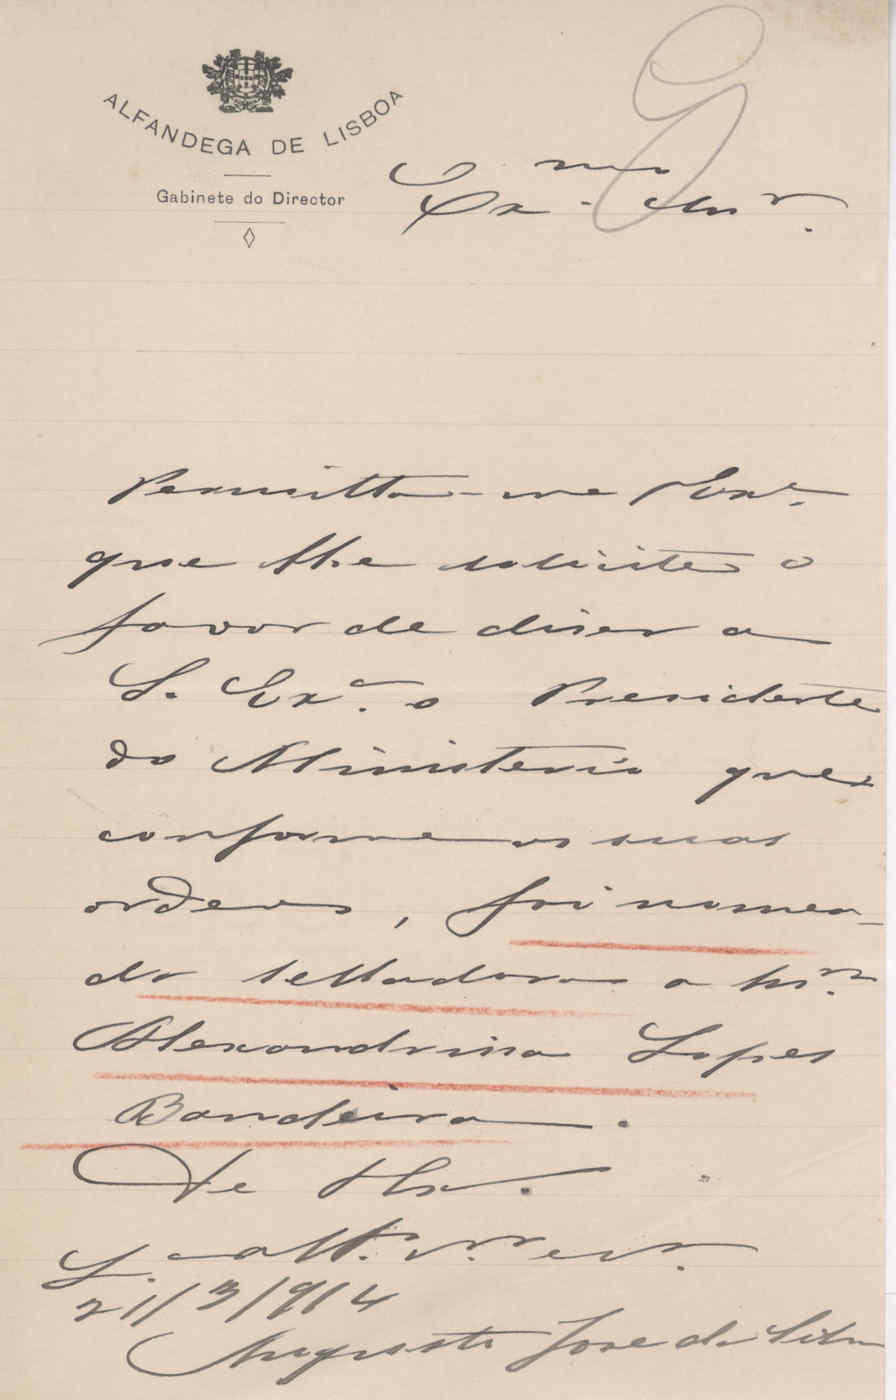 ALFANDEGA DE LISBOA
Gabinete do Director
Ex.mo Snr.
Permitta-me V Exa.
que lhe solicite o
favor de diser a
S. Exa. o Presidente
do Ministerio que
conforme as suas
ordens, foi nomea-
da selladora a Snra.
Alexandrina Lopes
Bandeira.
De V. Exa.
21/3/914
Augusto Jose da Silva